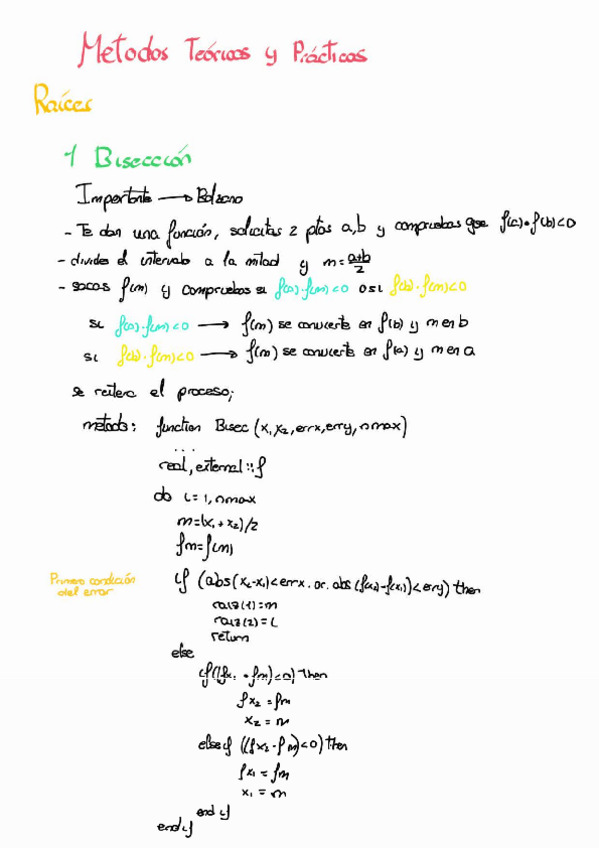 Metodos Teóricos y Prácticos
Raíces
1 Bisección
Importante → Bolzano
- Te dan una función, solicitas 2 ptos a,b y compruebas que f(a)·f(b)<0
- divides el intervalo a la mitad y m=a+b/2
- sacas f(m) y compruebas si f(a)·f(m)<0 o si f(b)·f(m)<0
si f(a)·f(m)<0 → f(m) se convierte en f(b) y m en b
si f(b)·f(m)<0 → f(m) se convierte en f(a) y m en a
se reitera el proceso;
metodo: function Bisec (x₁,x₂,errx,erry,nmax)
...
real, external :: f
do i=1,nmax
m=(x₁+x₂)/2
fm=f(m)
Primera condición
del error
if (abs(x₂-x₁)<errx .or. abs(f(x₂)-f(x₁))<erry) then
raiz(1)=m
raiz(2)=i
return
else
if((fx₁ * fm)<0) then
fx₂ = fm
x₂ = m
elseif ((fx₂·fm)<0) then
fx₁ = fm
x₁ = m
endif
endif